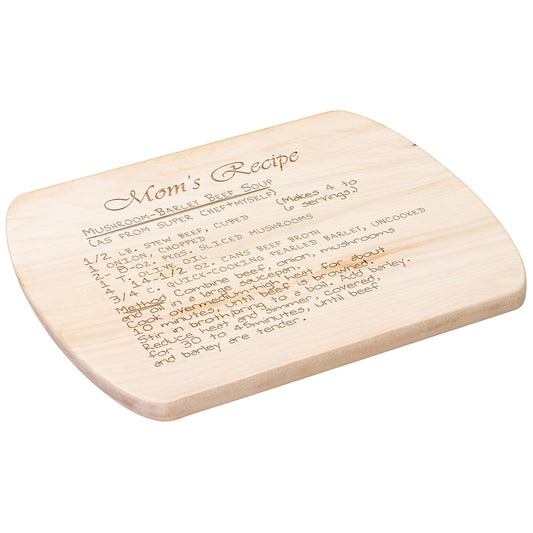 Mom's Recipe
MUSHROOM-BARLEY BEEF SOUP
(AS FROM SUPER CHEF+MYSELF) (Makes 4 to
6 servings.)
1/2 LB. STEW BEEF, CUBED
1 ONION, CHOPPED
2- 8-OZ. PKGS. SLICED MUSHROOMS
1 T. OLIVE OIL
4 - 14-1/2 OZ. CANS BEEF BROTH
3/4 C. QUICK-COOKING PEARLED BARLEY, UNCOOKED
Method: Combine beef, onion, mushrooms
and oil in a large saucepan.
Cook over medium-high heat for about
10 minutes, until beef is browned.
Stir in broth; bring to a boil. Add barley.
Reduce heat and simmer, covered,
for 30 to 45 minutes, until beef
and barley are tender.